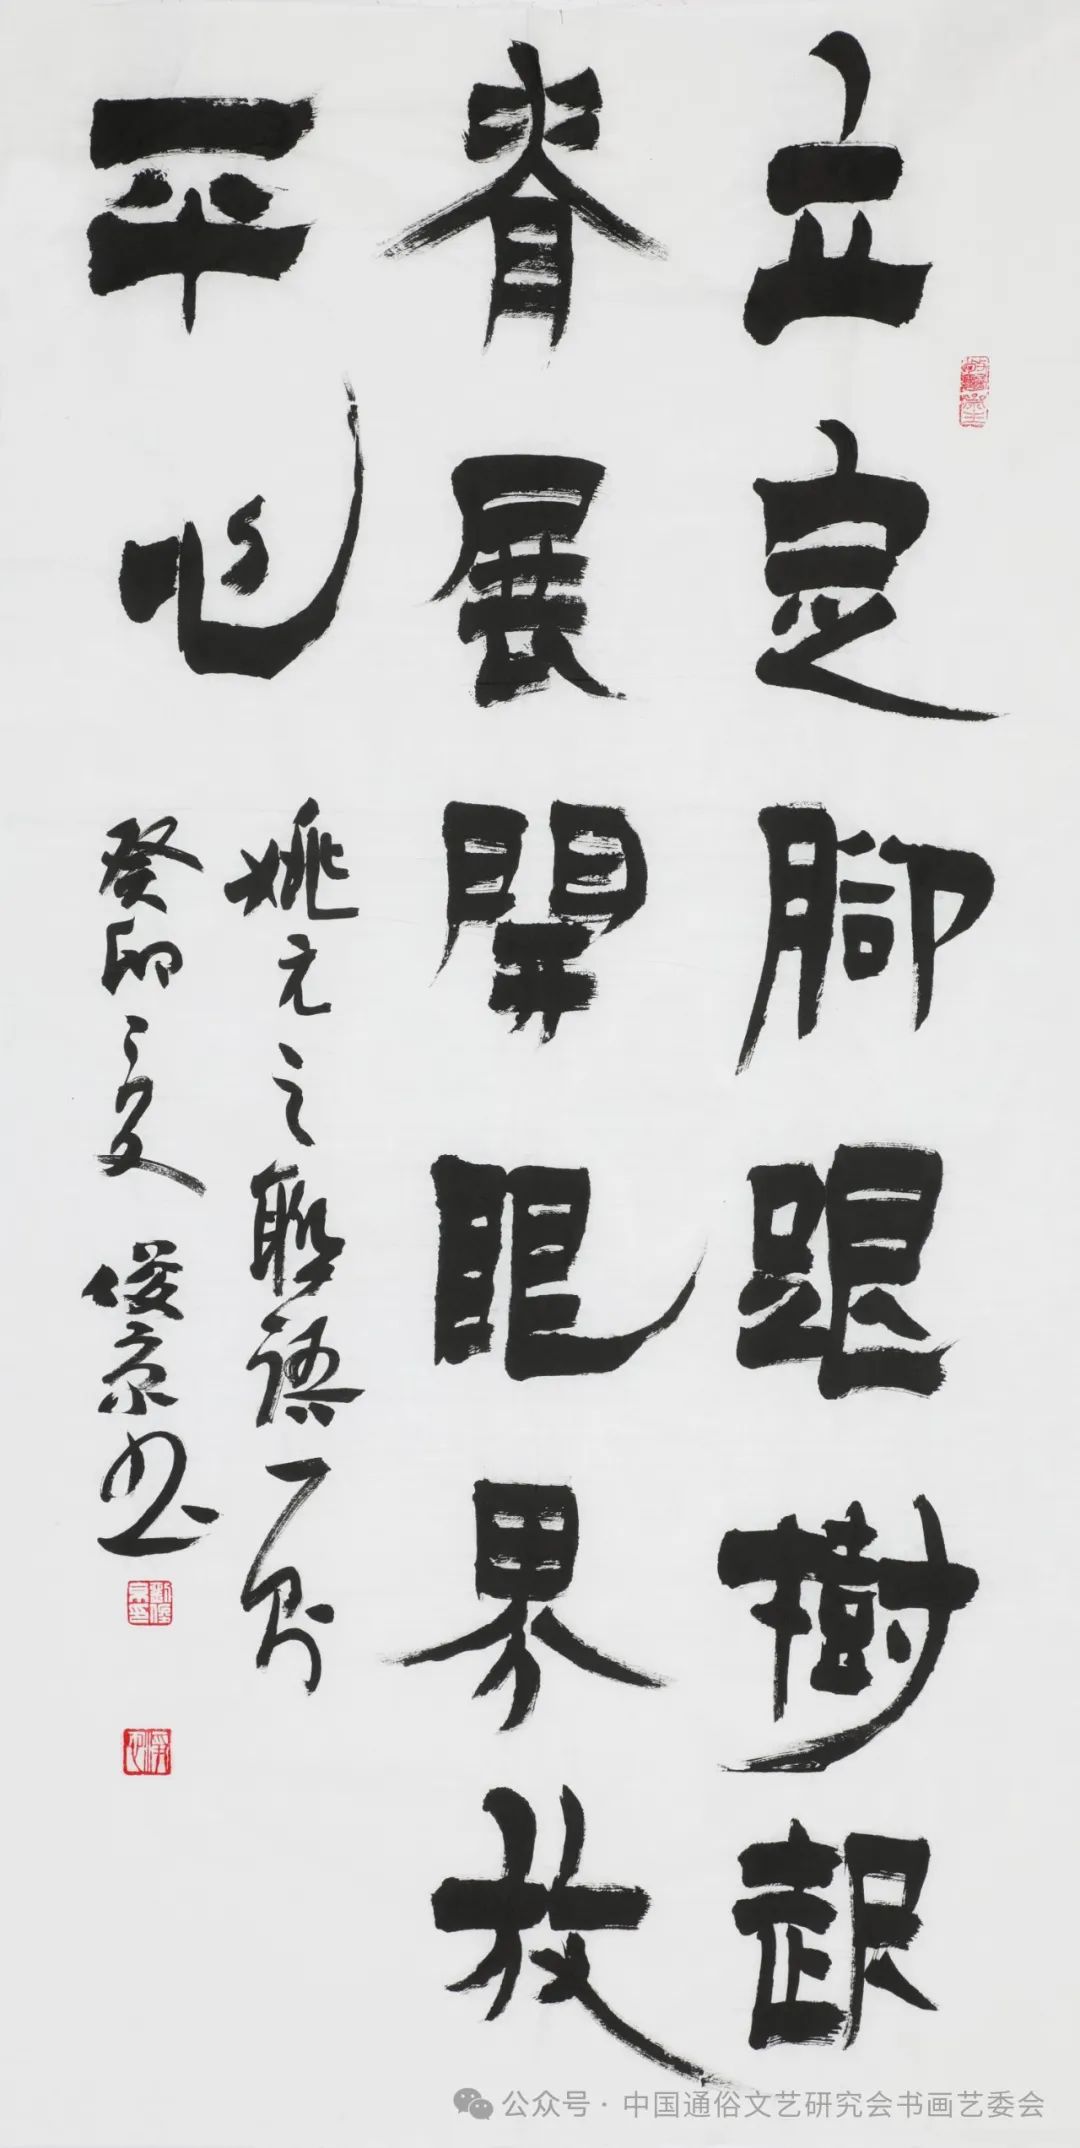 立定脚跟樹起
脊展開眼界放
平心
姚元之聯語一則
癸卯之夏 俊京书
公众号·中国通俗文艺研究会书画艺委会